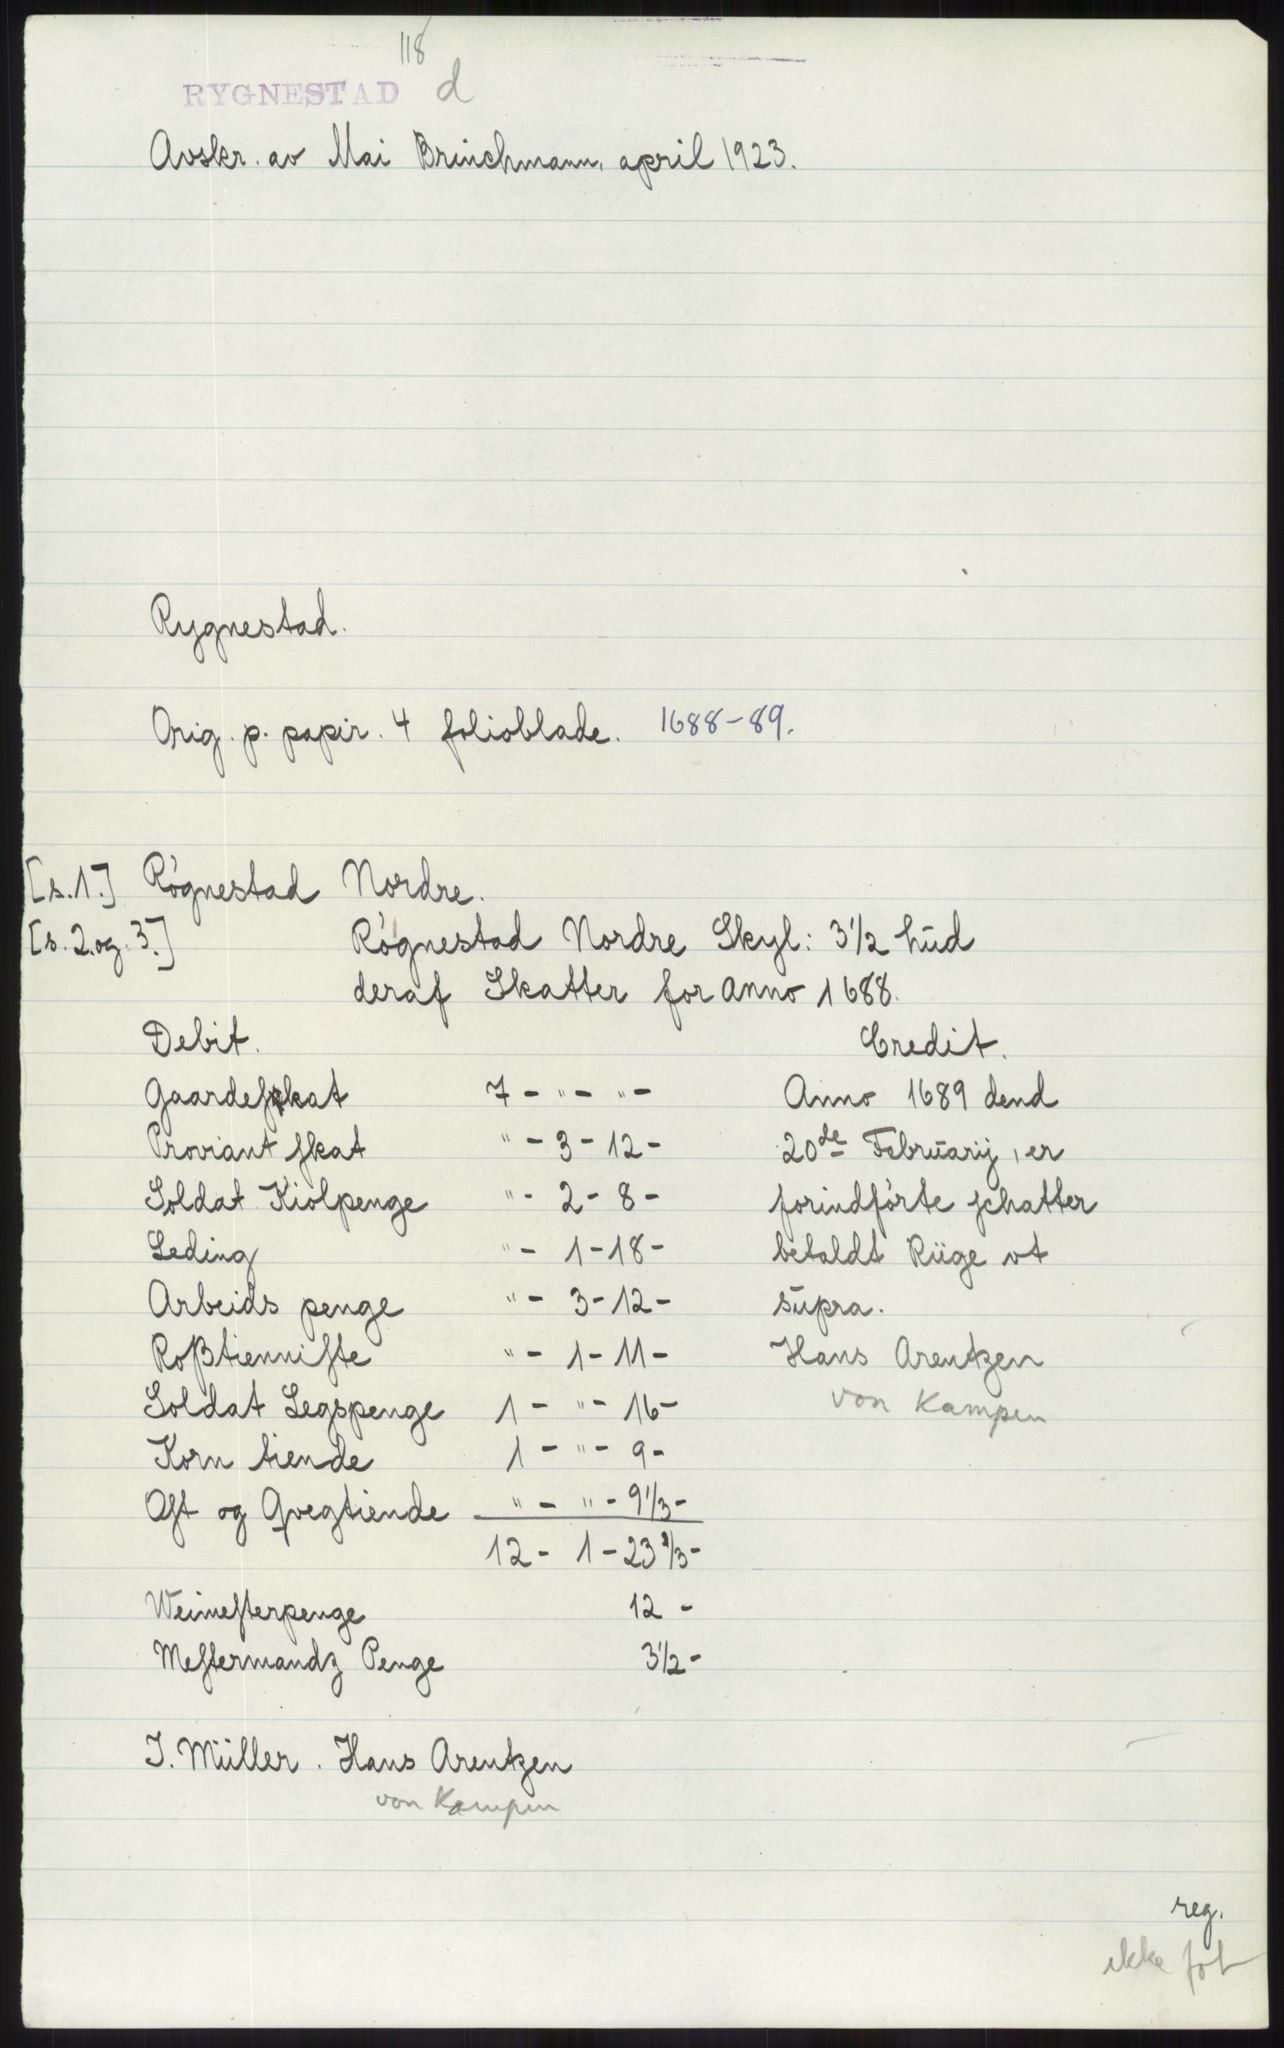 118
RYGNESTAD d
Avskr. av Mai Brinchmann, april 1923.
Rygnestad.
Orig. p. papir. 4 folioblade. 1688-89.
[s.1.] Røgnestad Nordre.
[s. 2. og. 3.] Røgnestad Nordre Skyl: 3 1/2 hŭd
deraf Skatter for anno 1688.
Debit. Credit.
Gaardeſkat 7 - " - " - Anno 1689 dend
Proviant ſkat " - 3 - 12 - 20de Februarij, er
Soldat Kiolpenge " - 2 - 8 - forindførte ſchatter
Leding " - 1 - 18 - betaldt Riige vt
Arbeids penge " - 3 - 12 - sŭpra.
Roßtienniſte " - 1 - 11 - Hans Arentzen
Soldat Legspenge 1 - " - 16 - von Kampen
Korn tiende 1 - " - 9 -
Oſt og Qvegtiende " - " - 9 1/3 -
12 - 1 - 23 1/3 -
Weimeſterpenge 12 -
Meſtermandz Penge 3 1/2 -
J. Müller. Hans Arentzen
von Kampen
reg.
ikke fot